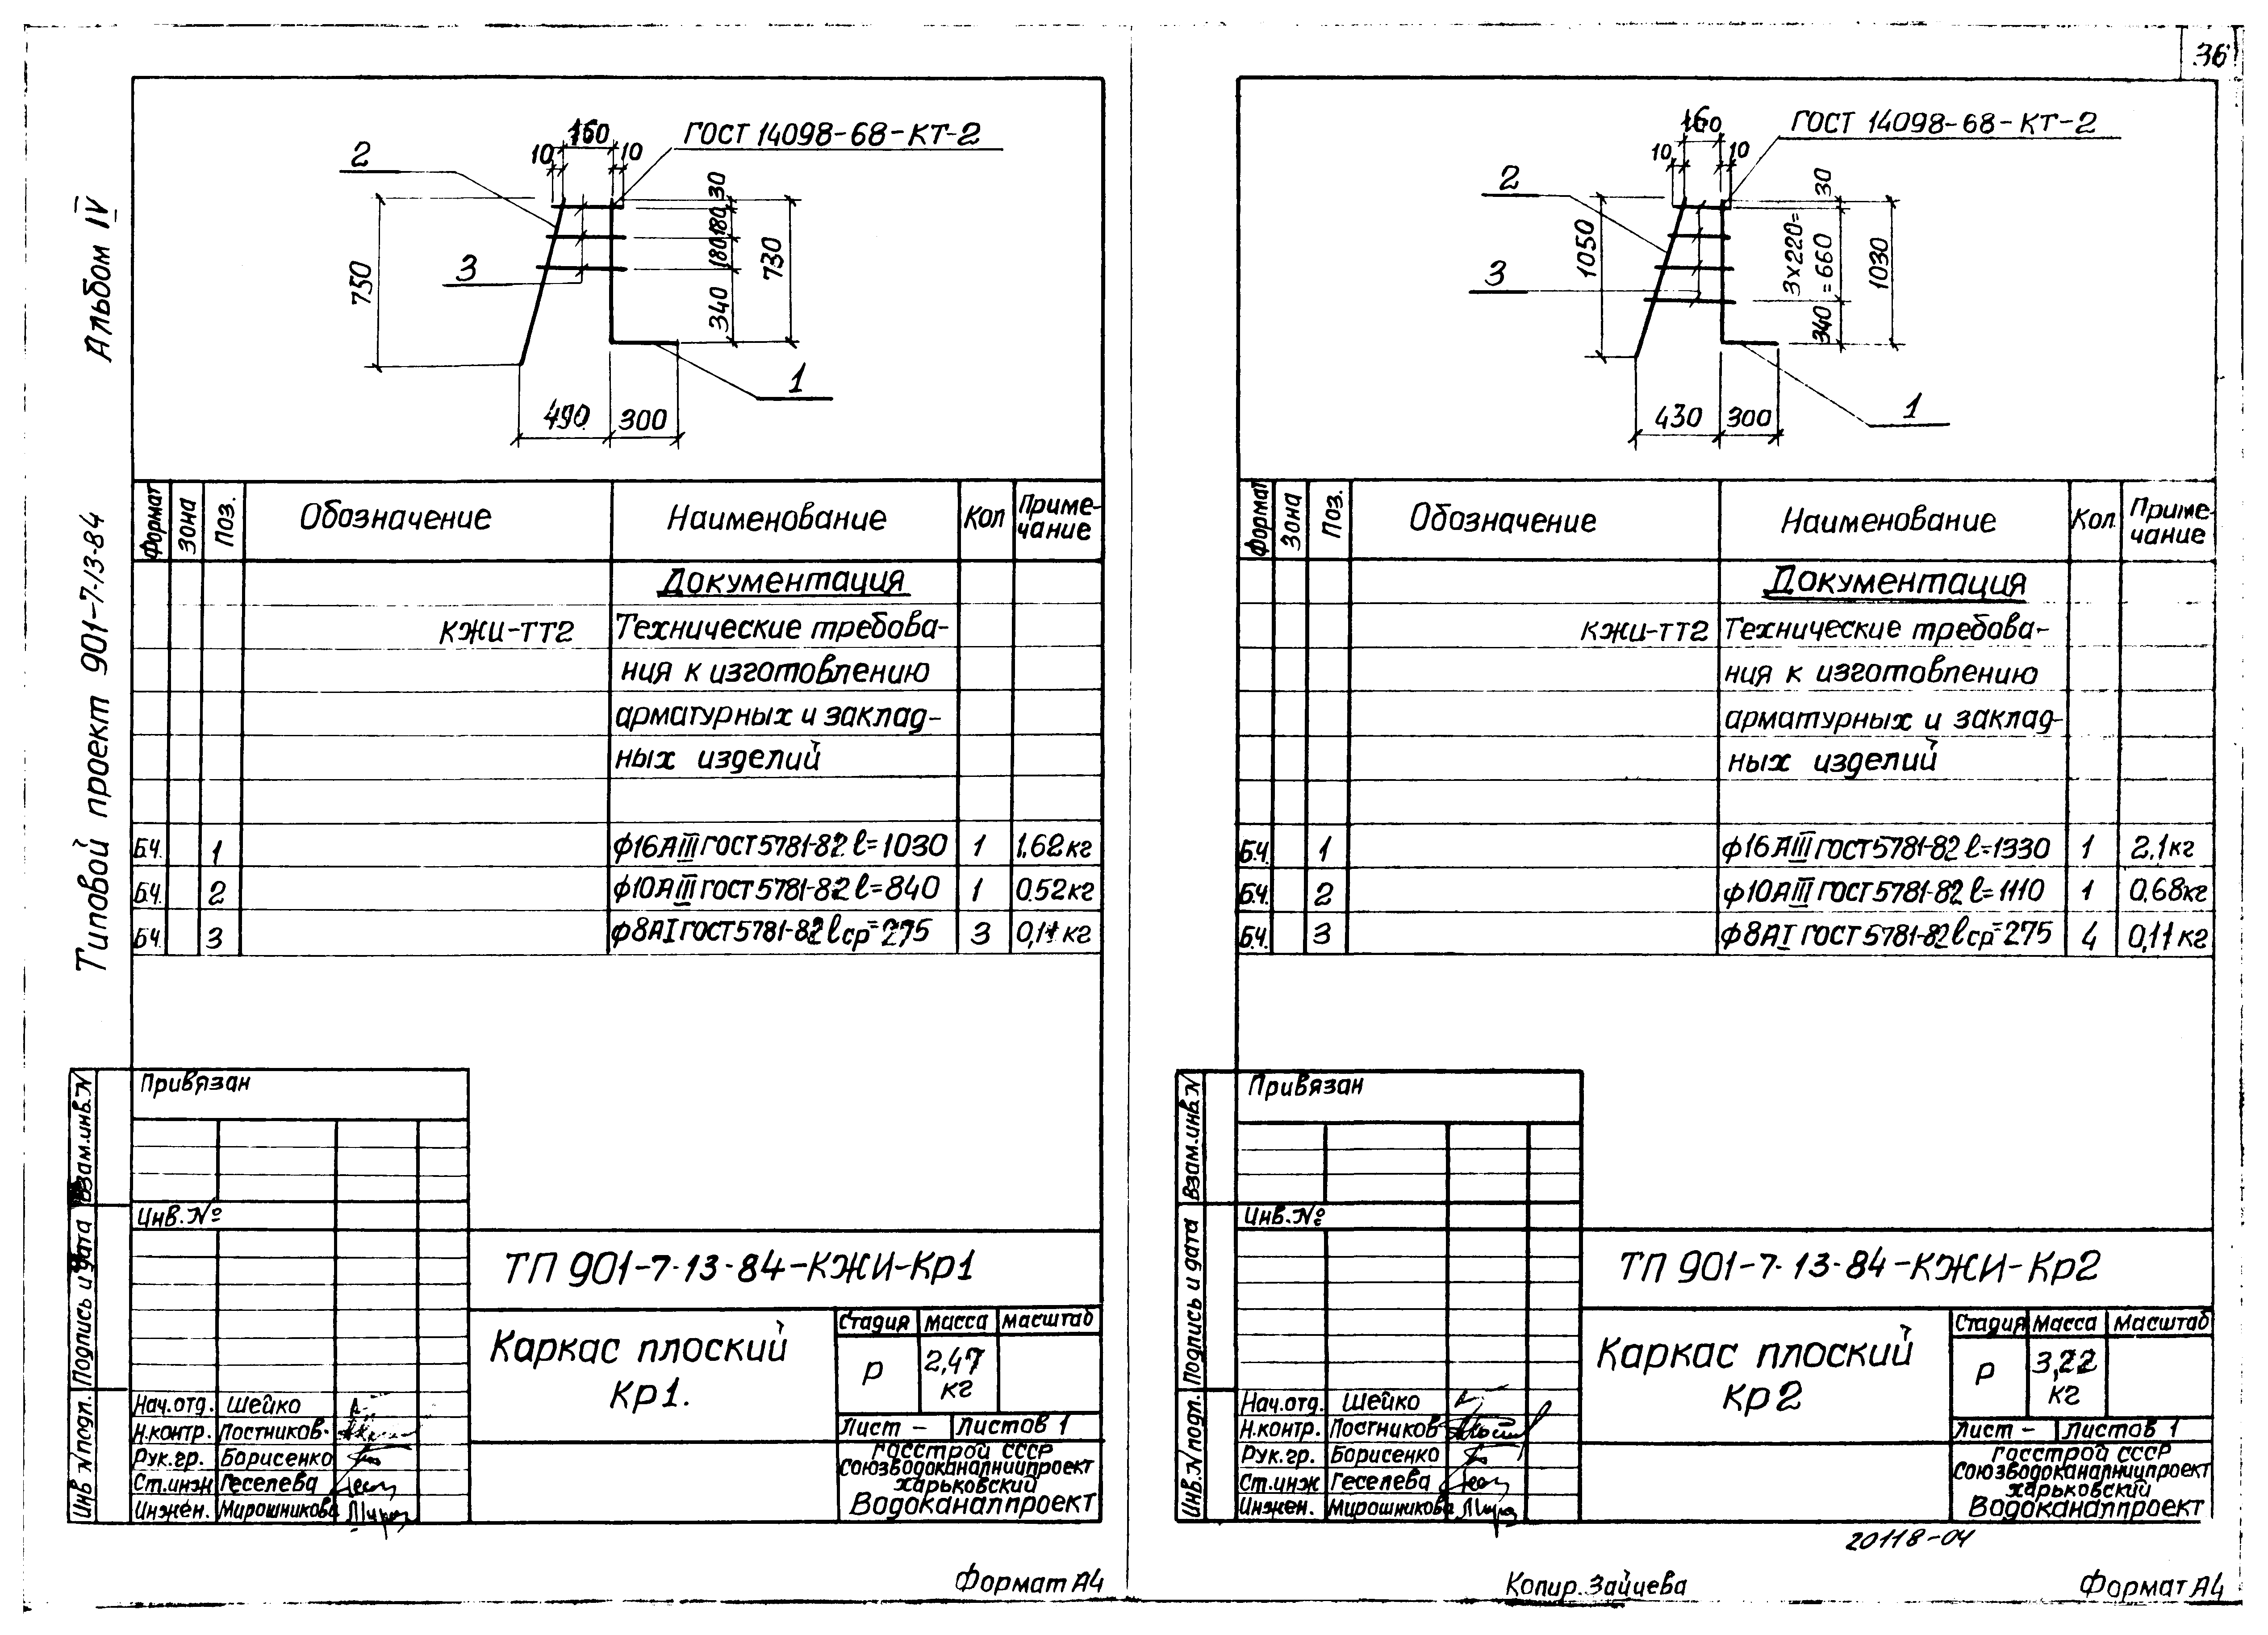 36
Альбом IV
Типовой проект 901-7-13-84
160
10
10
ГОСТ 14098-68-КТ-2
2
3
750
30
180
180
340
730
1
490
300
Формат
Зона
Поз.
Обозначение
Наименование
Кол
Приме-
чание
Документация
КЖИ-ТТ2
Технические требова-
ния к изготовлению
арматурных и заклад-
ных изделий
Б.Ч. 1 ф16АIII ГОСТ 5781-82 l=1030 1 1,62кг
Б.Ч. 2 ф10АIII ГОСТ 5781-82 l=840 1 0.52кг
Б.Ч. 3 ф8АI ГОСТ 5781-82 lср=275 3 0,11кг
Привязан
Инв.№
Взам.инв.N
Подпись и дата
Инв N подп.
ТП 901-7-13-84-КЖИ-Кр1
Каркас плоский
Кр1.
Стадия Масса Масштаб
Р 2,47
кг
Лист – Листов 1
Нач.отд. Шейко
Н.контр. Постников
Рук.гр. Борисенко
Ст.инж Геселева
Инжен. Мирошникова
Госстрой СССР
Союзводоканалниипроект
Харьковский
Водоканалпроект
Формат А4
160
10
10
ГОСТ 14098-68-КТ-2
2
3
1050
30
3х220=
=660
340
1030
1
430
300
Формат
Зона
Поз.
Обозначение
Наименование
Кол
Приме-
чание
Документация
КЖИ-ТТ2
Технические требова-
ния к изготовлению
арматурных и заклад-
ных изделий
Б.Ч. 1 ф16АIII ГОСТ 5781-82 l=1330 1 2,1кг
Б.Ч. 2 ф10АIII ГОСТ 5781-82 l=1110 1 0,68кг
Б.Ч. 3 ф8АI ГОСТ 5781-82 lср=275 4 0,11кг
Привязан
Инв.№
Взам.инв.N
Подпись и дата
Инв.N подп.
ТП 901-7-13-84-КЖИ-Кр2
Каркас плоский
Кр2
Стадия Масса Масштаб
Р 3,22
кг
Лист – Листов 1
Нач.отд. Шейко
Н.контр. Постников
Рук.гр. Борисенко
Ст.инж Геселева
Инжен. Мирошникова
Госстрой СССР
Союзводоканалниипроект
Харьковский
Водоканалпроект
20118-04
Копир. Зайцева
Формат А4